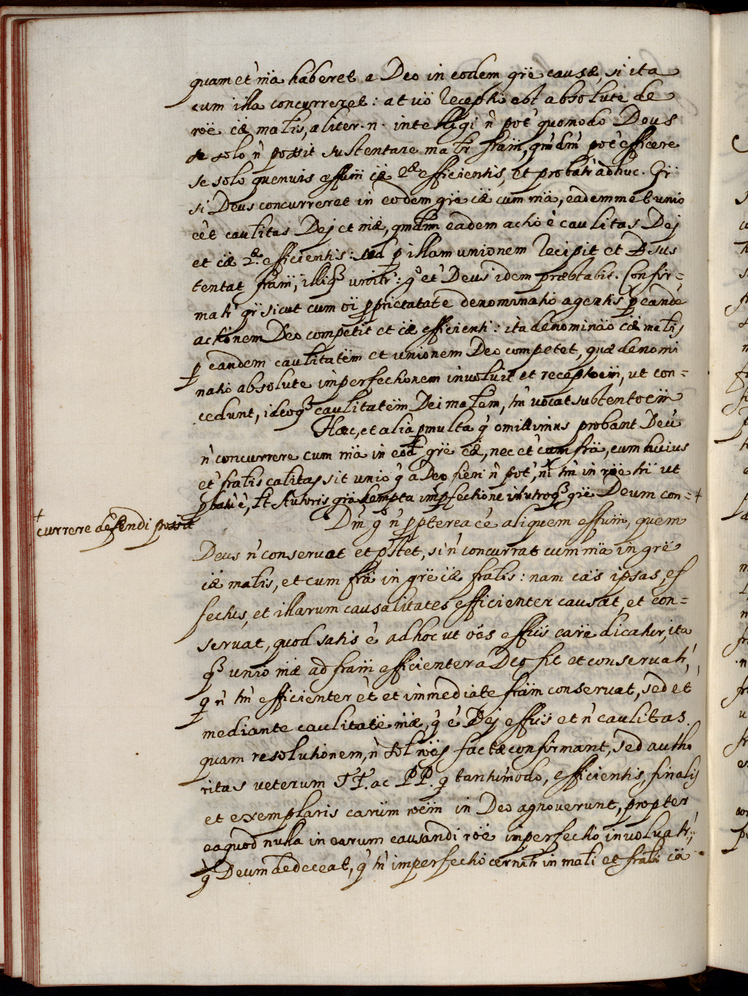 quam et mã haberet a Deo in eodem grẽ causæ, si ita
cum illa concurreret: at võ receptio est absolute de
rõe cæ malis, aliter .n. intelligi ñ pot quomodo Deus
se solo ñ possit sustentare malr fram, qmdm pot efficere
se solo quemuis effum cæ 2æ efficientis, et probatr adhuc. Qr
si Deus concurreret in eodem grẽ cæ cum mã, eademmet unio
eet caulitas Dej et mæ, qmdm eadem actio ẽ caulitas Dej
et cæ 2æ efficientis: sed p illam unionem recipit et sus
tentat fram, illiq3 unitr: g et Deus idem præstabit. Confir=
matr qr sicut cum oi pprietatate denominatio agentis p eandẽ
actionem Deo competit et cæ efficienti: ita denominão cæ malis
p eandem caulitatem et unionem Deo competet, quæ denomi
natio absolute imperfectionem inuoluit et receptioem, ut con=
cedunt, ideoq3 caulitatem Dei malem, tm vocat subtentoem
Hæc, et alia pmulta q omittimus probant Deũ
ñ concurrere cum mã in eod grẽ cæ, nec et cum frã, cum huius
et fralis calitas sit unio q a Deo fieri ñ pot, ni tm in
Deum con= +
+ currere defendi possit
Dm g ñ ppterea ẽe aliquem effum, quem
Deus ñ conseruat et pstet, si ñ concurrat cum mã in grẽ
cæ malis, et cum frã in grẽ cæ fralis: nam cas ipsas, ef
fectus, et illarum causalitates efficienter causat, et con=
seruat, quod satis ẽ ad hoc ut oes effus care dicatur, ita
q3 unio mæ ad fram efficienter a Deo fit et conseruatr,
q ñ tm efficienter et et immediate fram conseruat, sed et
mediante caulitate mæ, q ẽ Dej effus et ñ caulitas.
quam resolutionem, ñ sol rões factæ confirmant, sed autho
ritas veterum TT. ac PP. q tantumodo, efficientis, finalis
et exemplaris carum rõem in Deo agnouerunt, propter
ea quod nulla in earum causandi rõe imperfectio inuoluatr,
q Deum dedeceat, q tm imperfectio cernitr in mali et frali cã